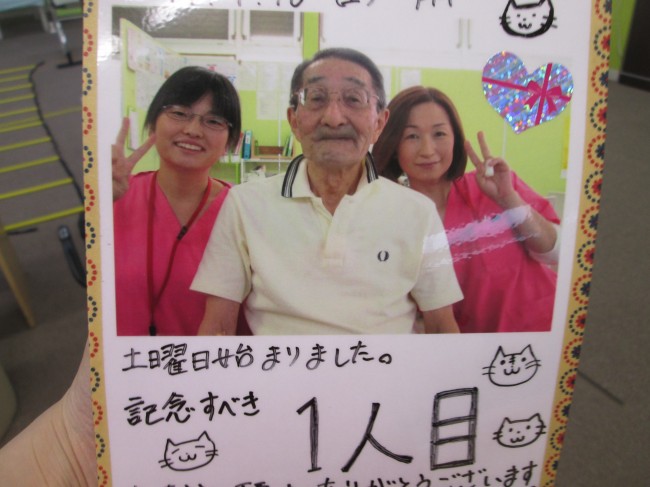 土曜日始まりました。
記念すべき
1人目
ありがとうございます